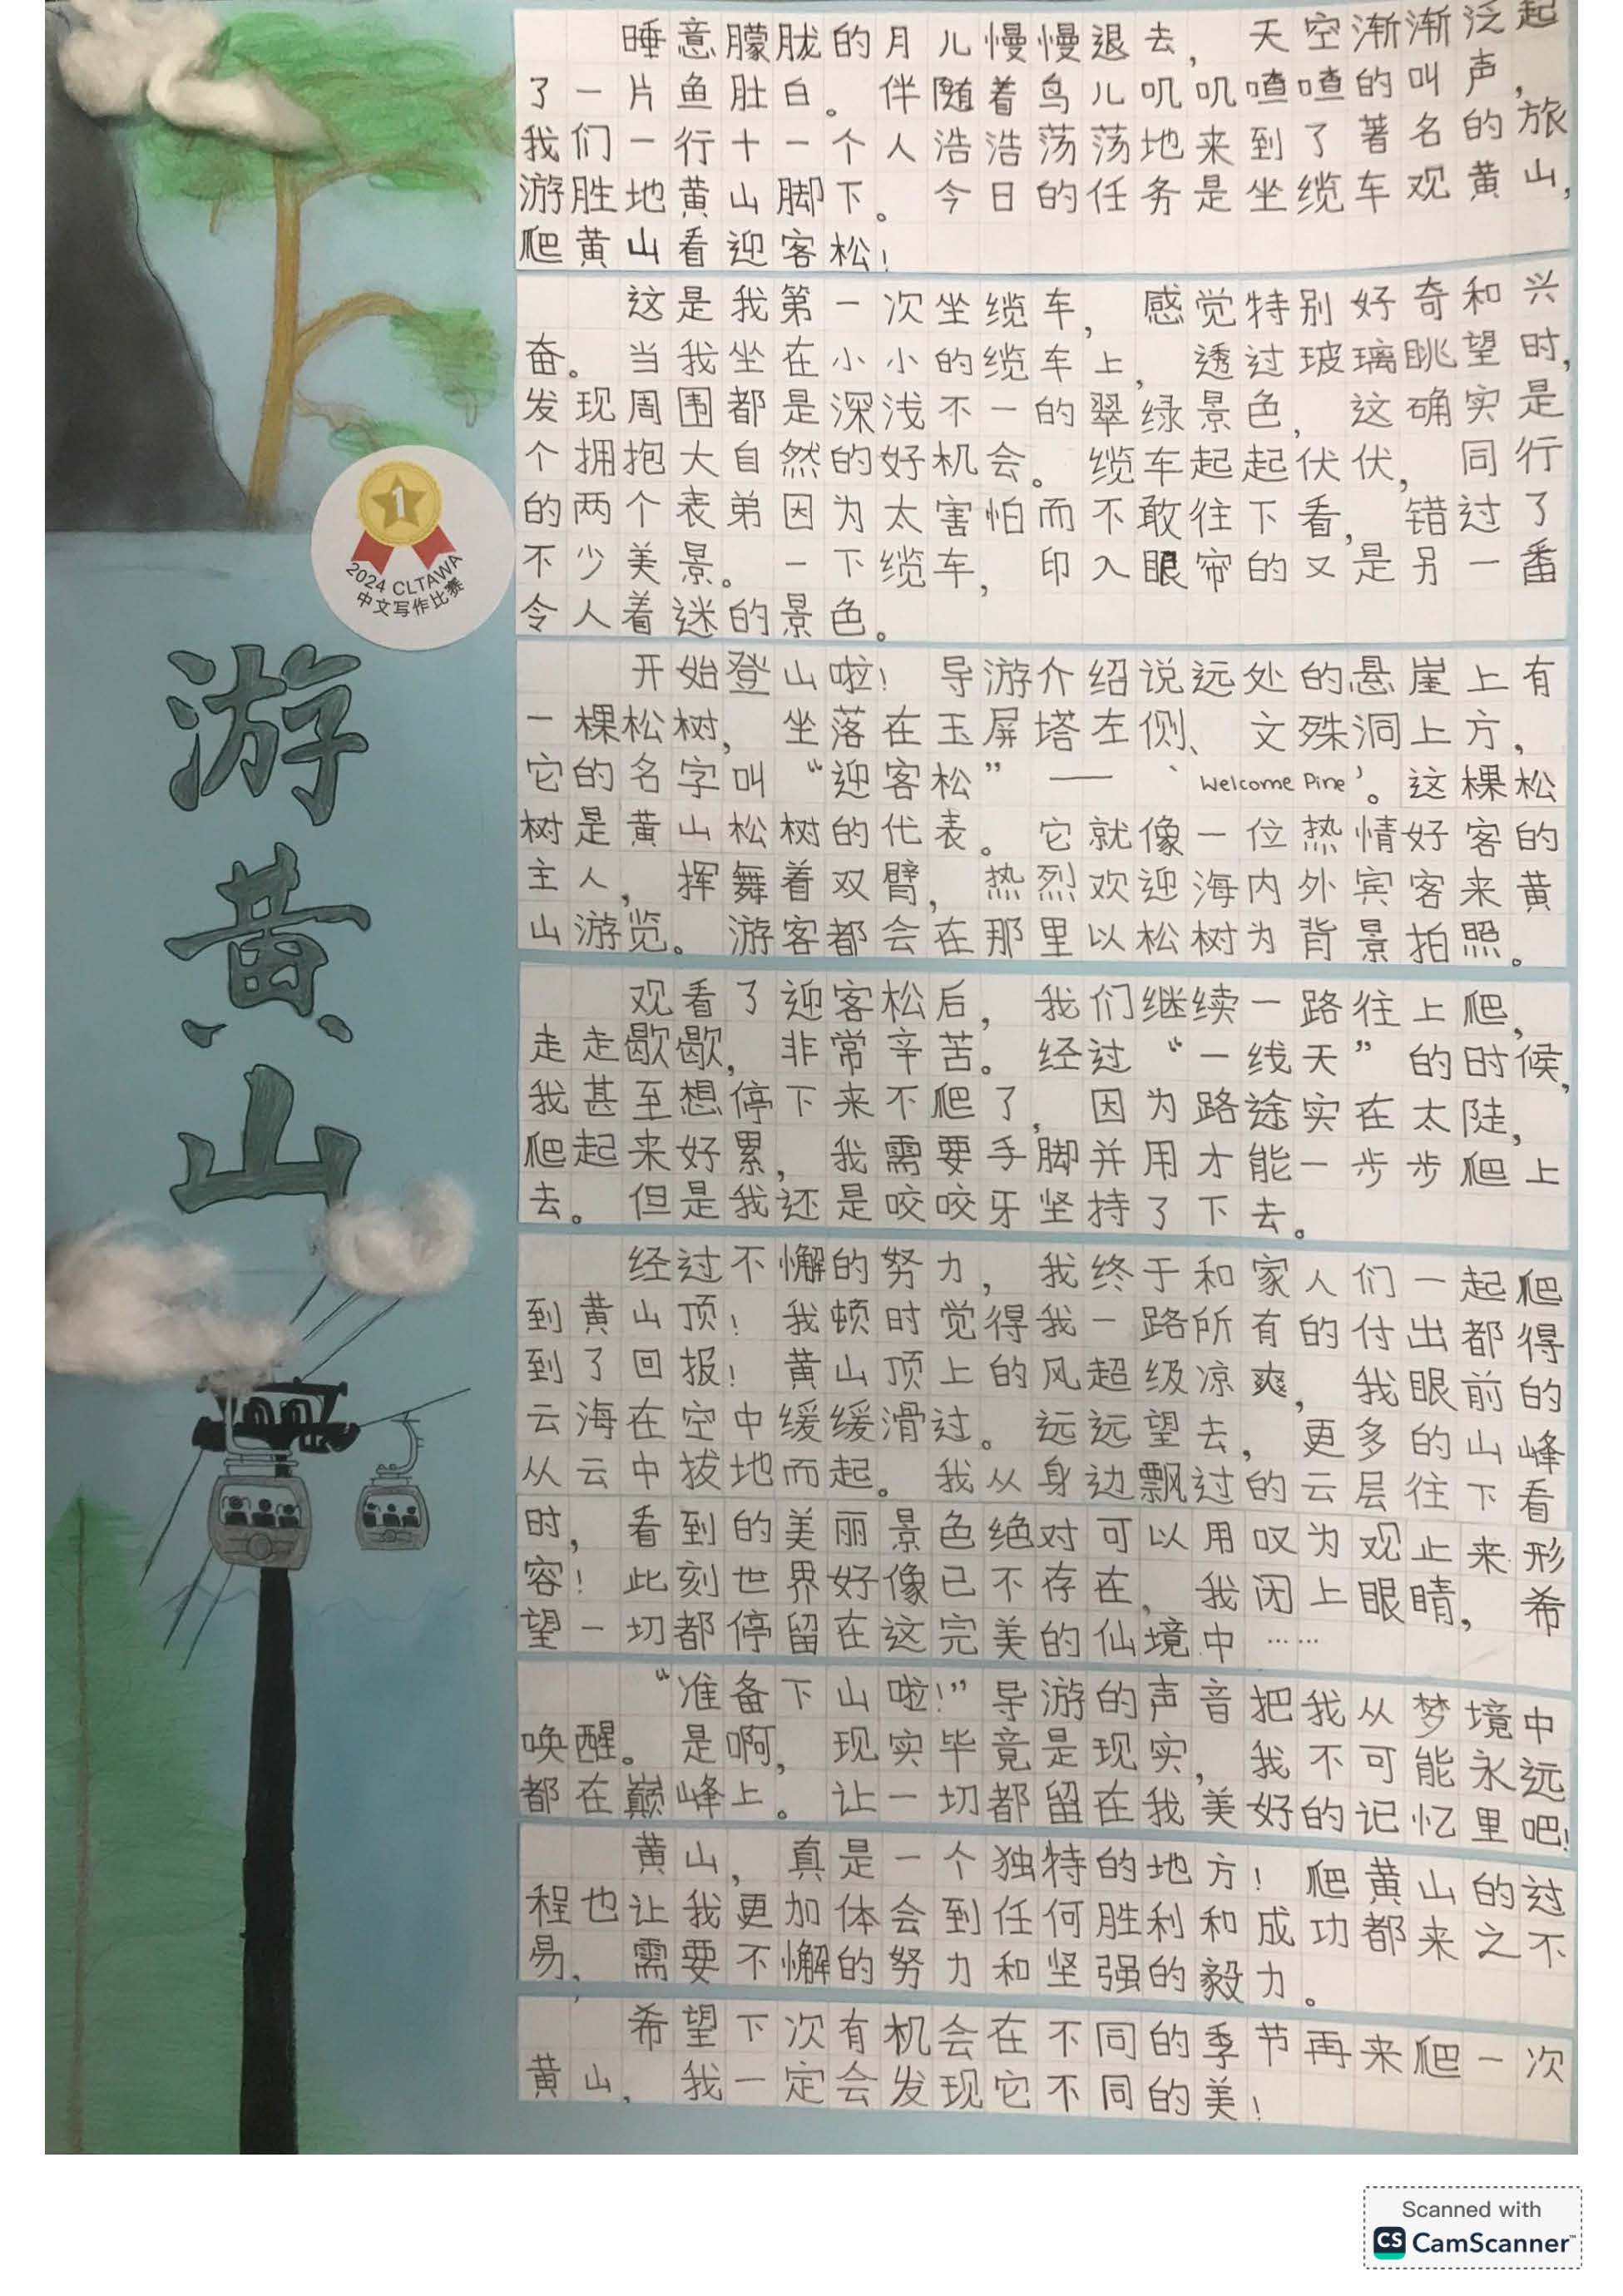 游黄山
1
2024 CLTAWA
中文写作比赛
睡意朦胧的月儿慢慢退去，天空渐渐泛起
了一片鱼肚白。伴随着鸟儿叽叽喳喳的叫声，
我们一行十一个人浩浩荡荡地来到了著名的旅
游胜地黄山脚下。今日的任务是坐缆车观黄山，
爬黄山看迎客松！
这是我第一次坐缆车，感觉特别好奇和兴
奋。当我坐在小小的缆车上，透过玻璃眺望时，
发现周围都是深浅不一的翠绿景色，这确实是
个拥抱大自然的好机会。缆车起起伏伏，同行
的两个表弟因为太害怕而不敢往下看，错过了
不少美景。一下缆车，印入眼帘的又是另一番
令人着迷的景色。
开始登山啦！导游介绍说远处的悬崖上有
一棵松树，坐落在玉屏塔左侧、文殊洞上方，
它的名字叫“迎客松”——‘Welcome Pine’。这棵松
树是黄山松树的代表。它就像一位热情好客的
主人，挥舞着双臂，热烈欢迎海内外宾客来黄
山游览。游客都会在那里以松树为背景拍照。
观看了迎客松后，我们继续一路往上爬，
走走歇歇，非常辛苦。经过“一线天”的时候，
我甚至想停下来不爬了，因为路途实在太陡，
爬起来好累，我需要手脚并用才能一步步爬上
去。但是我还是咬咬牙坚持了下去。
经过不懈的努力，我终于和家人们一起爬
到黄山顶！我顿时觉得我一路所有的付出都得
到了回报！黄山顶上的风超级凉爽，我眼前的
云海在空中缓缓滑过。远远望去，更多的山峰
从云中拔地而起。我从身边飘过的云层往下看
时，看到的美丽景色绝对可以用叹为观止来形
容！此刻世界好像已不存在，我闭上眼睛，希
望一切都停留在这完美的仙境中……
“准备下山啦！”导游的声音把我从梦境中
唤醒。是啊，现实毕竟是现实，我不可能永远
都在巅峰上。让一切都留在我美好的记忆里吧！
黄山，真是一个独特的地方！爬黄山的过
程也让我更加体会到任何胜利和成功都来之不
易，需要不懈的努力和坚强的毅力。
希望下次有机会在不同的季节再来爬一次
黄山，我一定会发现它不同的美！
Scanned with
CS CamScanner